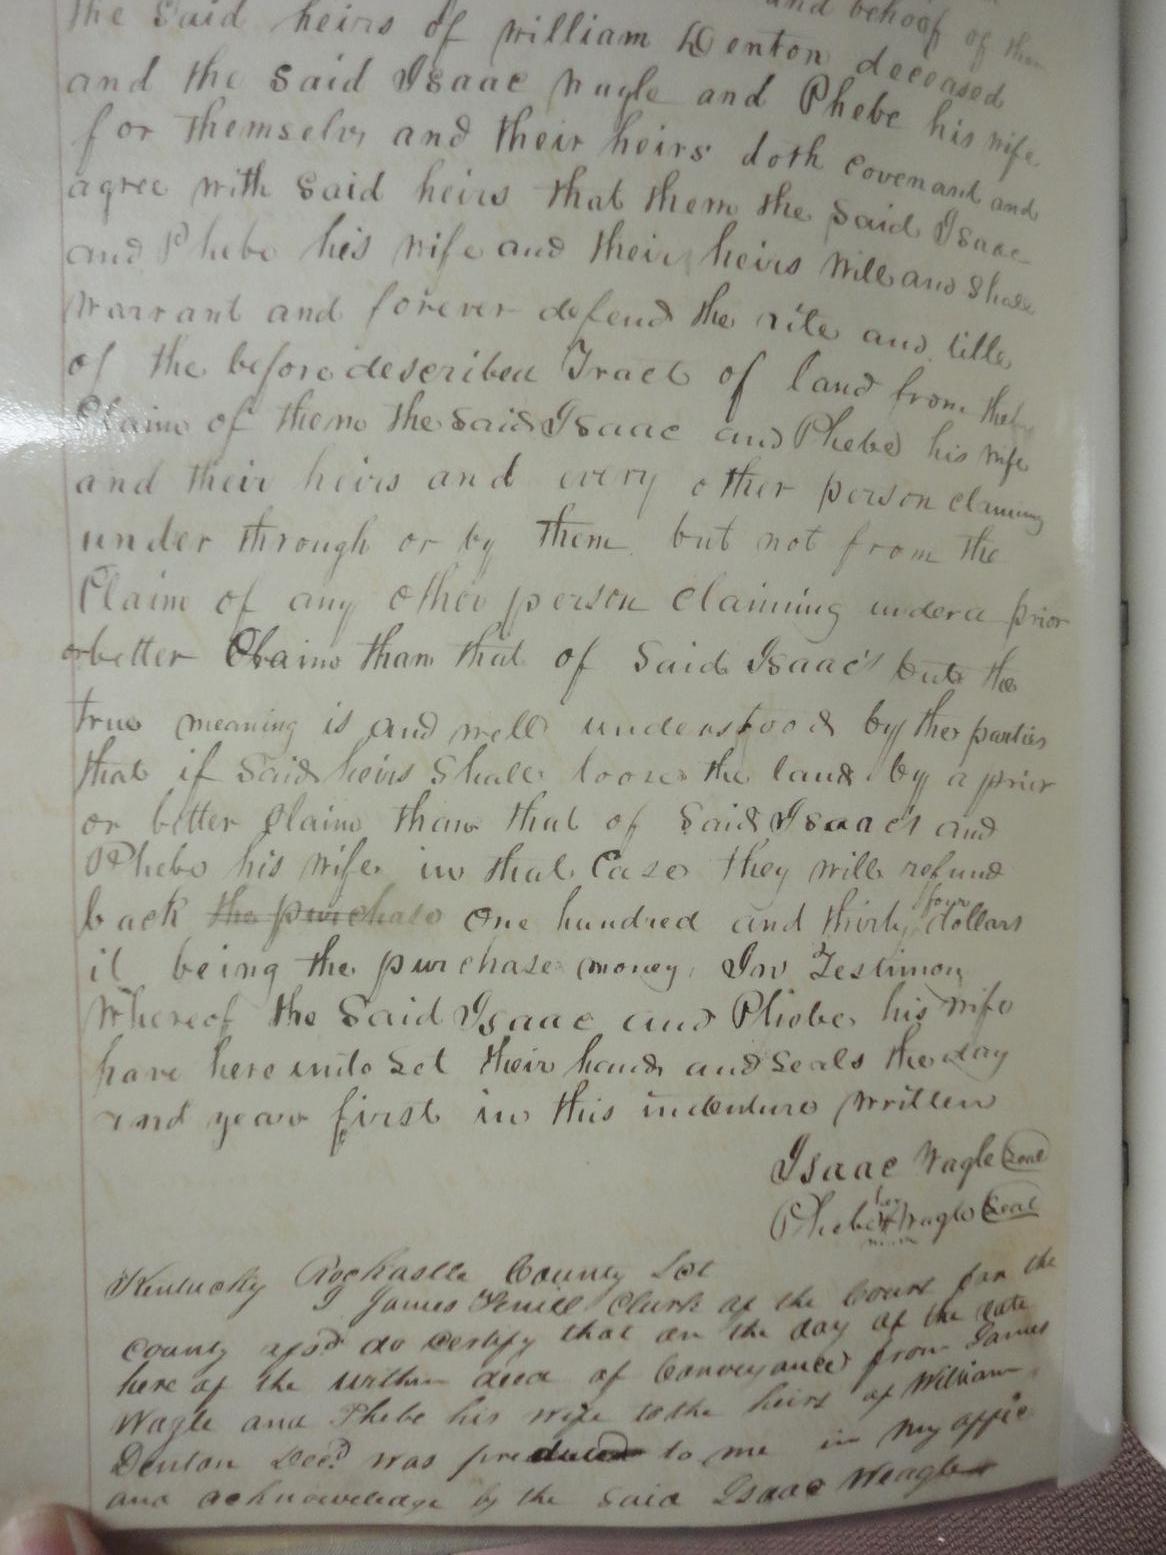 and behoof of them
the said heirs of William Denton deceased
and the said Isaac Nagle and Phebe his wife
for themselvs and their heirs doth covenant and
agree with said heirs that them the said Isaac
and Phebe his wife and their heirs will and shall
warrant and forever defend the rite and title
of the before described Tract of land from the
Claim of them the said Isaac and Phebe his wife
and their heirs and every other person claiming
under through or by them but not from the
Claim of any other person claiming under a prior
or better Claim than that of said Isaac's but the
true meaning is and well understood by the parties
that if said heirs shall loose the land by a prior
or better Claim than that of said Isaac's and
Phebe his wife in that Case they will refund
back the purchase one hundred and thirty four dollars
it being the purchase money, In Testimony
Whereof the said Isaac and Phebe his wife
have here unto set their hands and seals the day
and year first in this indenture written
Isaac Nagle Seal
Phebe her X mark Nagle Seal
Kentucky Rockastle County Sct
I James Clurk of the Court for the
county afsd do certify that on the day of the date
here of the within deed of Conveyance from James
Nagle and Phebe his wife to the heirs of William
Denton Decd was produced to me in my office
and acknowledge by the said Isaac Neagle